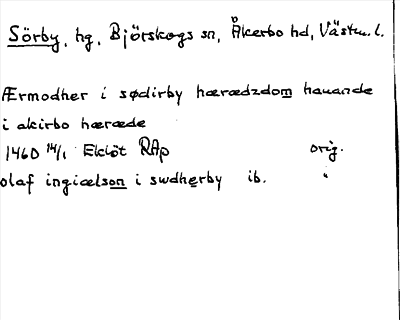 Sörby, hg, Björskogs sn, Åkerbo hd, Västm. l.
Ærmodher i sødirby hærædzdom hauande
i akirbo hæræde
1460 14/1 Eklöt RAp orig.
olaf ingiælson i swdherby ib. "